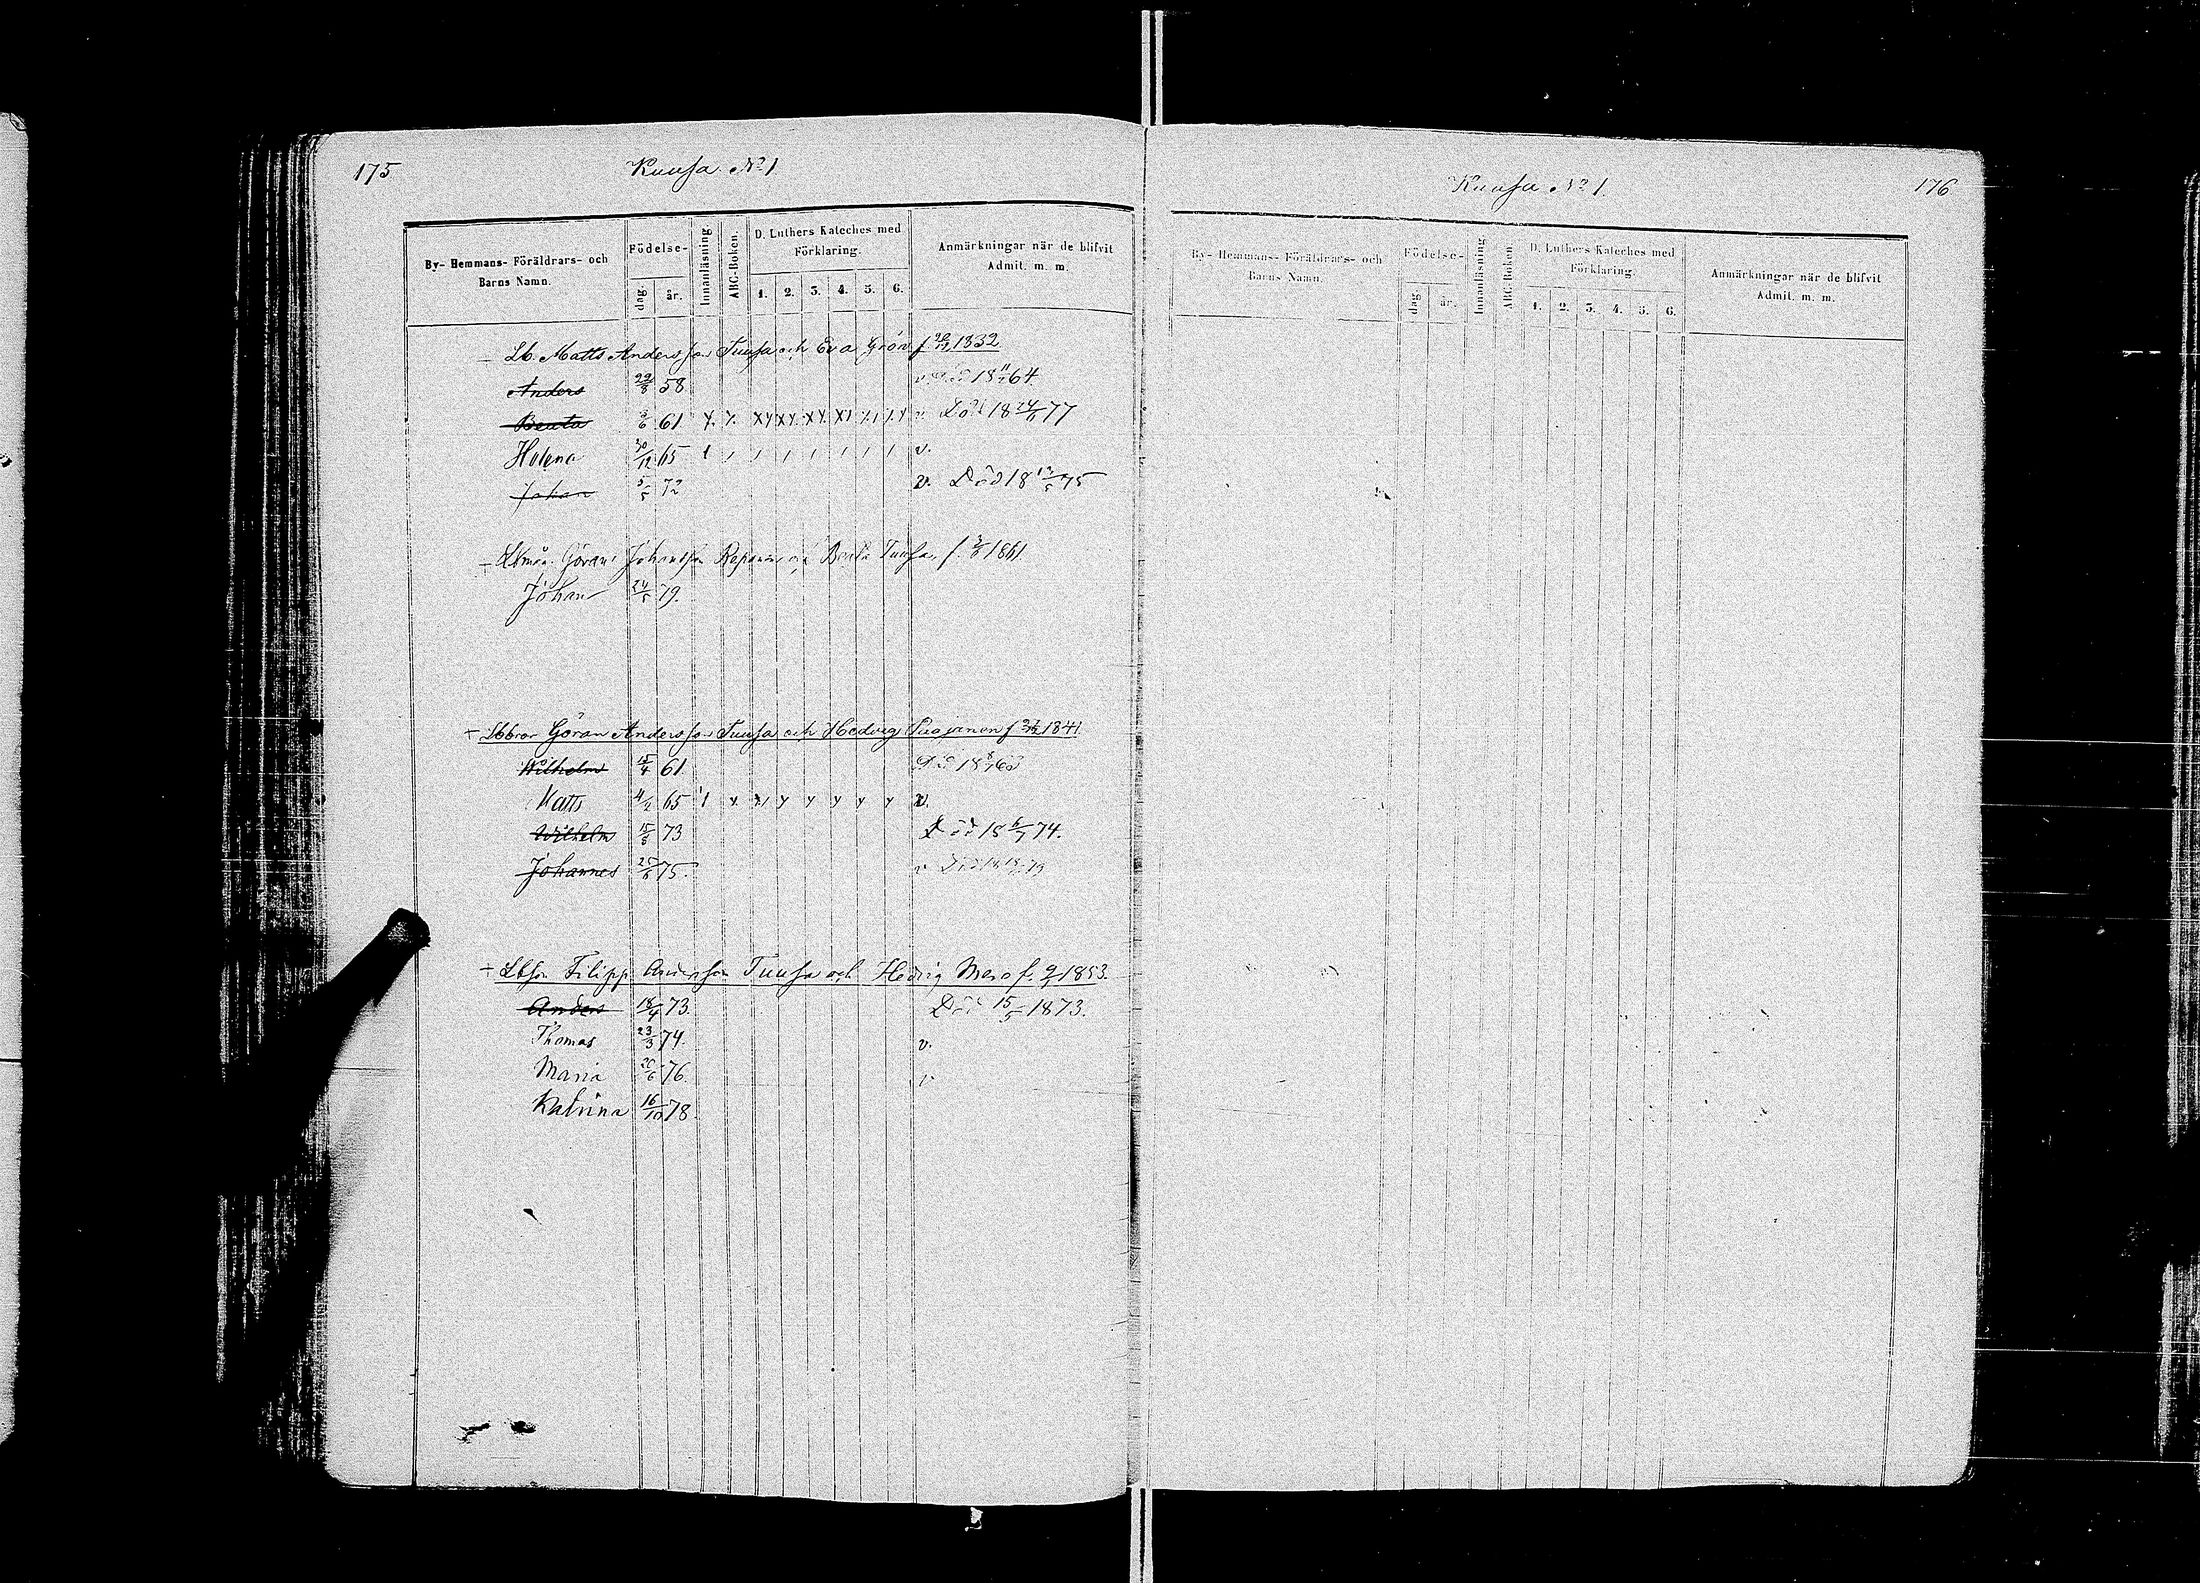 175
Kuusa No 1
By- Hemmans- Föräldrars- och Barns Namn.
Födelse-
dag.
år.
Innanläsning.
ABC-Boken.
D. Luthers Kateches med Förklaring.
1. 2. 3. 4. 5. 6.
Anmärkningar när de blifvit Admit. m. m.
Lb. Matts Andersson Tuusa och Eva Grön f 1832
Anders 29/8 58 v Död 18 11/7 64
Beata 61 x x xx xx xx v Död 18 77
Helena 30/12 65 v.
Johan 5/5 72 v. Död 18 75
Göran Johansson Reponen och Beata Tuusa, f. 1861
Johan 24/5 79.
Lbbror Göran Andersson Tuusa och Hedvig f 1841
Wilhelm 15/4 61 Död 18
Matts 4/2 65 v.
Wilhelm 15/6 73 Död 18 6/7 74.
Johannes 25/6 75. v Död
Lbson Filipp Andersson Tuusa och Hedvig f. 1853.
Anders 18/4 73. Död 15/5 1873.
Thomas 23/3 74. v.
Maria 20/6 76. v
Katrina 16/10 78.
Kuusa No 1.
176
By- Hemmans- Föräldrars- och Barns Namn.
Födelse-
dag
år.
Innanläsning
ABC-Boken
D. Luthers Kateches med Förklaring.
1. 2. 3. 4. 5. 6.
Anmärkningar när de blifvit Admit. m. m.